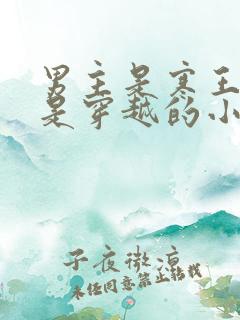 男主是寒王
是穿越的小
子夜微凉
未经同意禁止转载